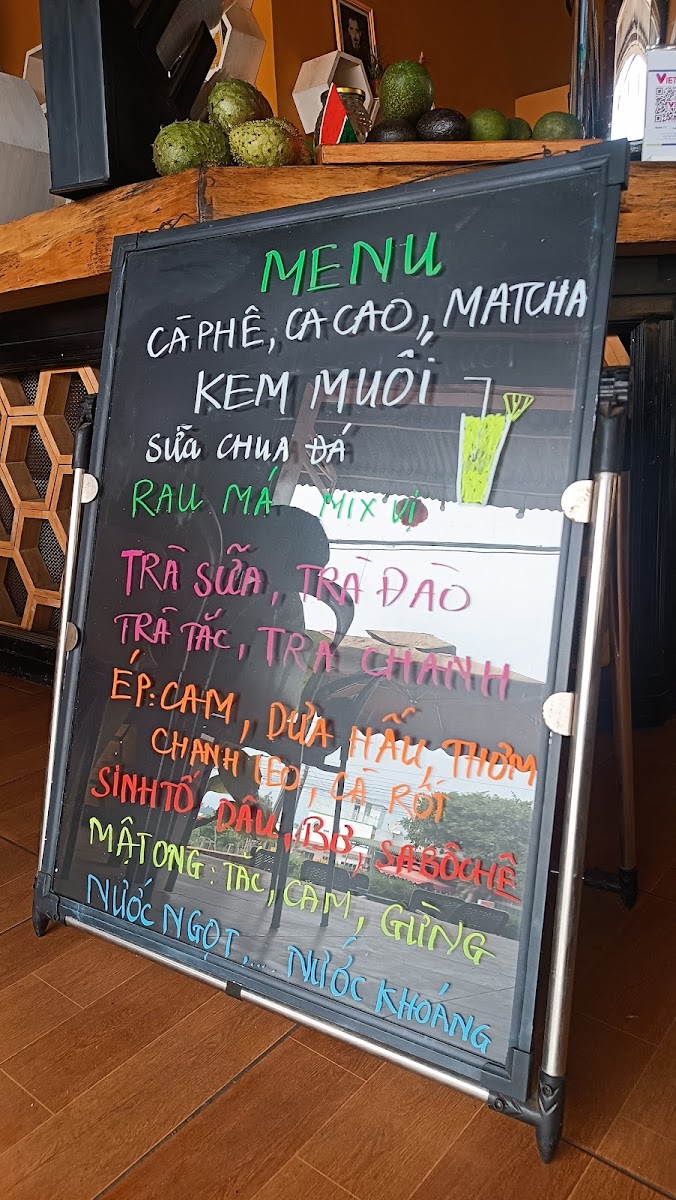 MENU
CÀ PHÊ, CA CAO, MATCHA
KEM MUỐI
SỮA CHUA ĐÁ
RAU MÁ MIX VỊ
TRÀ SỮA, TRÀ ĐÀO
TRÀ TẮC, TRÀ CHANH
ÉP: CAM, DƯA HẤU, THƠM
CHANH LEO, CÀ RỐT
SINH TỐ DÂU, BƠ, SABÔCHÊ
MẬT ONG: TẮC, CAM, GỪNG
NƯỚC NGỌT,.... NƯỚC KHOÁNG
VIET